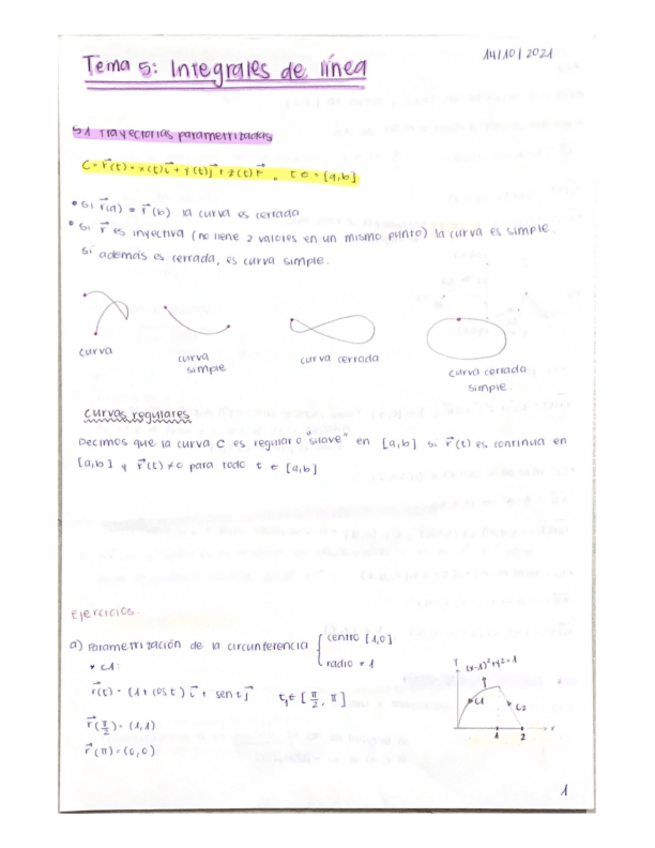 14/10/2021
Tema 5: Integrales de línea
5.1 Trayectorias parametrizadas
C = r⃗(t) = x(t)i⃗ + y(t)j⃗ + z(t)k⃗, t ∈ [a,b]
• Si r⃗(a) = r⃗(b) la curva es cerrada
• Si r⃗ es inyectiva (no tiene 2 valores en un mismo punto) la curva es simple.
Si además es cerrada, es curva simple.
curva
curva simple
curva cerrada
curva cerrada simple.
curvas regulares
Decimos que la curva C es regular o "suave" en [a,b] si r⃗(t) es continua en
[a,b] y r⃗(t) ≠ 0 para todo t ∈ [a,b]
Ejercicios
a) Parametrización de la circunferencia { centro [1,0]
radio = 1
* C1:
r⃗(t) = (1 + cos t) i⃗ + sen t j⃗ t₁ ∈ [π/2, π]
r⃗(π/2) = (1,1)
r⃗(π) = (0,0)
Y
(x-1)²+y²=1
C1
C2
1
2
x
1